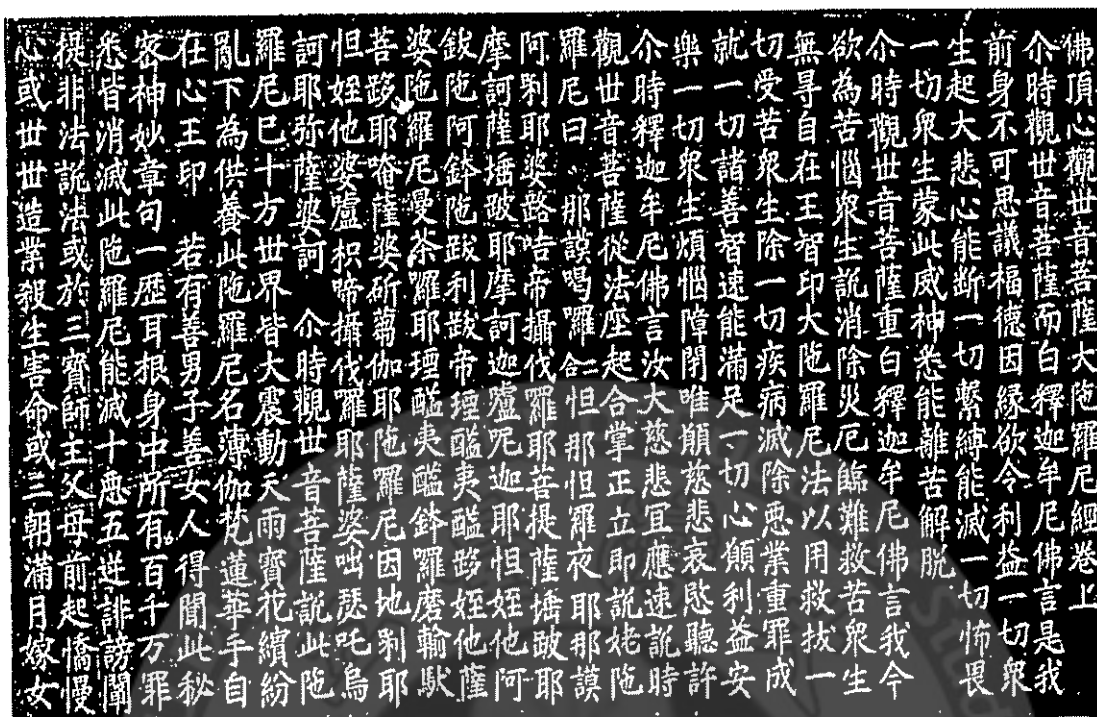 佛頂心觀世音菩薩大陁羅尼經卷上
尒時觀世音菩薩而白釋迦牟尼佛言是我
前身不可思議福德因縁欲令利益一切衆
生起大悲心能断一切繫縛能滅一切怖畏
一切衆生蒙此威神悉能離苦解脱
尒時觀世音菩薩重白釋迦牟尼佛言我今
欲為苦惱衆生説消除災厄臨難救苦衆生
無㝵自在王智印大陁羅尼法以用救拔一
切受苦衆生除一切疾病滅除悪業重罪成
就一切諸善智速能滿足一切心願利益安
樂一切衆生煩惱障閉唯願慈悲哀愍聽許
尒時釋迦牟尼佛言汝大慈悲宜應速說時
觀世音菩薩從法座起合掌正立即說姥陁
羅尼曰 那謨喝囉二合怛那怛羅夜耶那謨
阿剎耶婆路咭帝攝伐羅耶菩提薩埵跛耶
摩訶薩埵跛耶摩訶迦嚧呢迦耶怛姪他阿
鈸陁阿鉢陁跋利跋帝堙醯夷醯跢姪他薩
婆陁羅尼曼荼羅耶堙醯夷醯鉢羅磨輸馱
菩跢耶唵薩婆斫蒭伽耶陁羅尼因地剎耶
怛姪他婆嚧枳啼攝伐羅耶薩婆咄瑟吒烏
訶耶弥薩婆訶 尒時觀世音菩薩說此陁
羅尼已十方世界皆大震動天雨寶花繽紛
亂下為供養此陁羅尼名薄伽梵蓮華手自
在心王印 若有善男子善女人得聞此秘
密神妙章句一歴耳根身中所有百千万罪
悉皆消滅此陁羅尼能滅十悪五逆誹謗闡
提非法説法或於三寳師主父母前起憍慢
心或世世造業殺生害命或三朝滿月嫁女